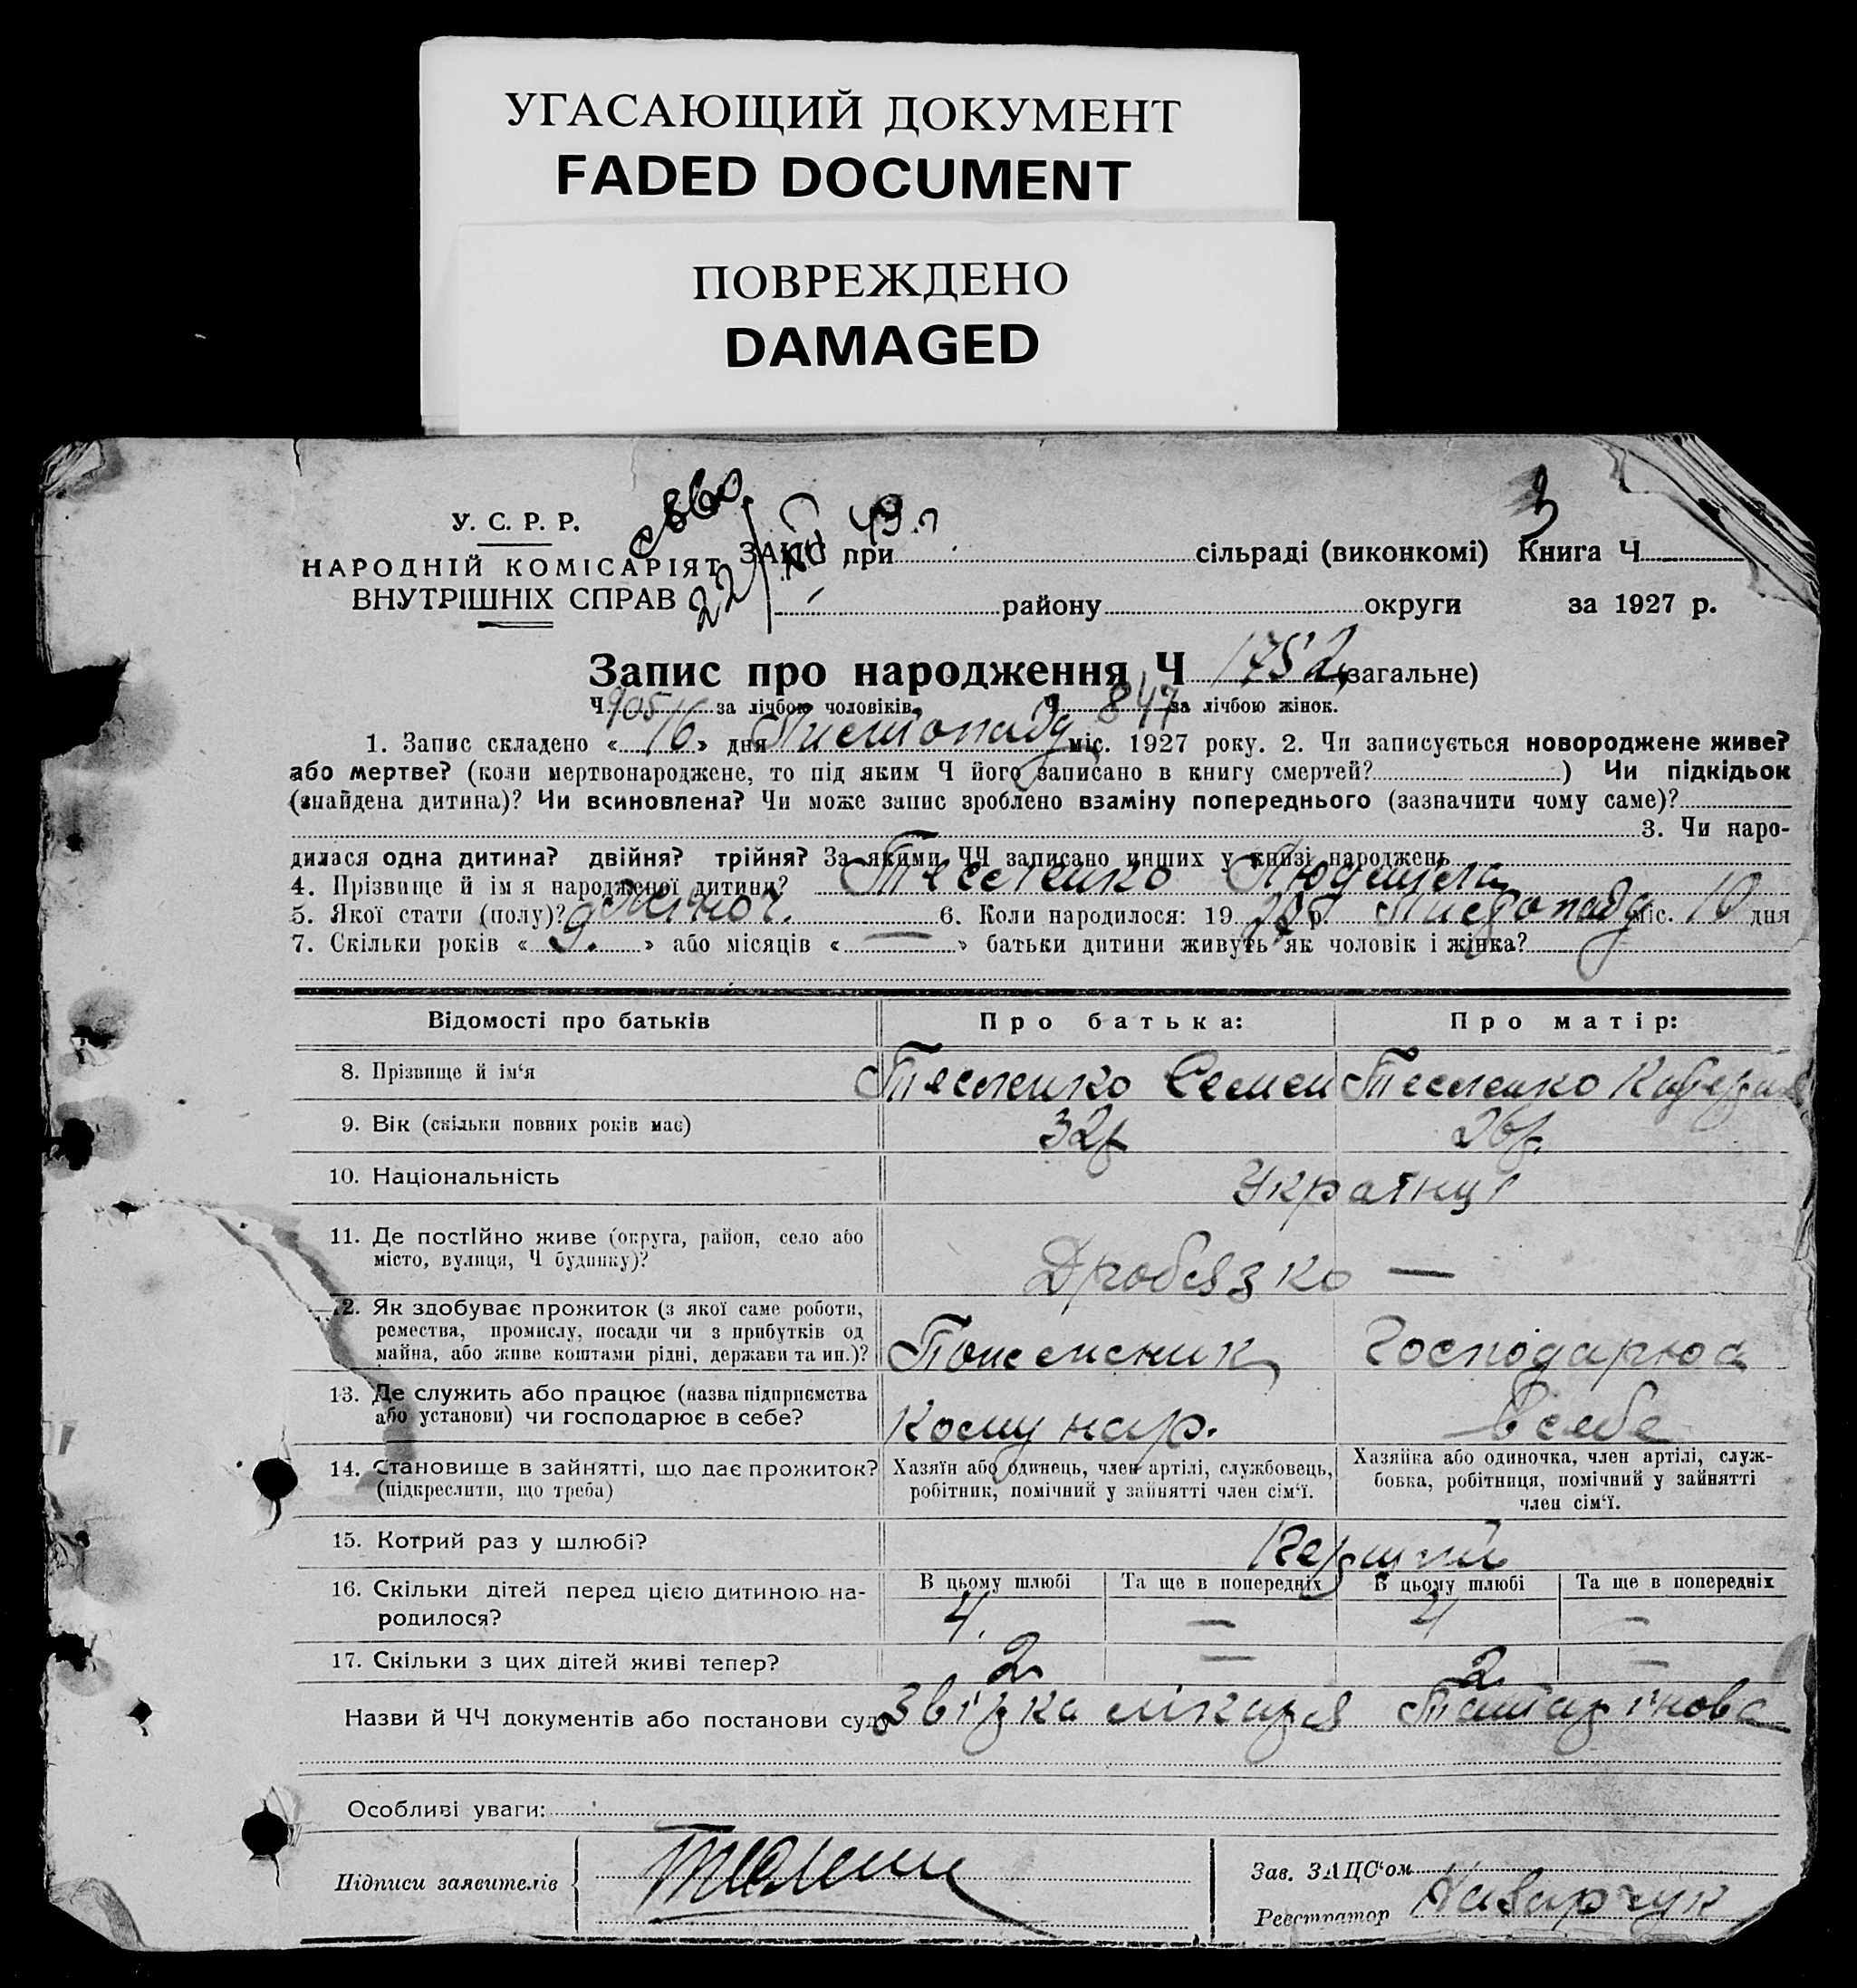 УГАСАЮЩИЙ ДОКУМЕНТ
FADED DOCUMENT
ПОВРЕЖДЕНО
DAMAGED
У. С. Р. Р.
НАРОДНІЙ КОМІСАРІЯТ
ВНУТРІШНІХ СПРАВ
22/
3
ЗАПИС при сільраді (виконкомі) Книга Ч
району округи за 1927 р.
Запис про народження Ч 1752 (загальне)
Ч 905 за лічбою чоловіків, Ч 847 за лічбою жінок.
1. Запис складено « 16 » дня Листопаду міс. 1927 року. 2. Чи записується новороджене живе?
або мертве? (коли мертвонароджене, то під яким Ч його записано в книгу смертей? ) Чи підкідьок
(знайдена дитина)? Чи всиновлена? Чи може запис зроблено взаміну попереднього (зазначити чому саме)?
3. Чи наро-
дилася одна дитина? двійня? трійня? За якими ЧЧ записано инших у книзі народжень
4. Прізвище й ім я народженої дитини? Тесленко Людмила
5. Якої стати (полу)? жіноч. 6. Коли народилося: 19 р. Листопаду міс. 10 дня
7. Скільки років « 9. » або місяців « — » батьки дитини живуть як чоловік і жінка?
Відомості про батьків Про батька: Про матір:
8. Прізвище й ім'я Тесленко Семен Тесленко
9. Вік (скільки повних років має) 32р 26р.
10. Національність Українці
11. Де постійно живе (округа, район, село або
місто, вулиця, Ч будинку)? Дробязко —
12. Як здобуває прожиток (з якої саме роботи,
ремества, промислу, посади чи з прибутків од
майна, або живе коштами рідні, держави та ин.)? Господарює
13. Де служить або працює (назва підприємства
або установи) чи господарює в себе? Комунар. в себе
14. Становище в зайнятті, що дає прожиток?
(підкреслити, що треба)
Хазяїн або одинець, член артілі, службовець,
робітник, помічний у зайнятті член сім'ї.
Хазяйка або одиночка, член артілі, служ-
бовка, робітниця, помічний у зайнятті
член сім'ї.
15. Котрий раз у шлюбі? Перший
16. Скільки дітей перед цією дитиною на-
родилося?
В цьому шлюбі Та ще в попередніх В цьому шлюбі Та ще в попередніх
4. — 4 —
17. Скільки з цих дітей живі тепер? 2 — 2 —
Назви й ЧЧ документів або постанови суду Звірка лікаря Татарінова
Особливі уваги:
Підписи заявителів
Зав. ЗАЦС'ом
Реєстратор